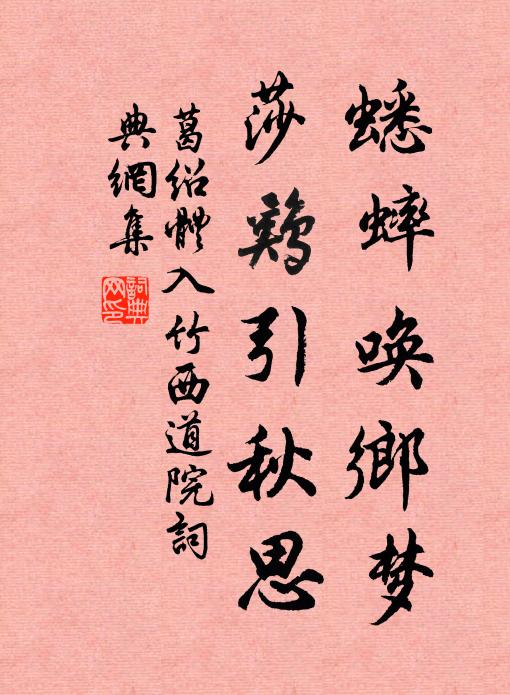 蟋蟀唤鄉梦
莎鷄引秋思
葛绍體入竹西道院詞
典網集
詞典網印